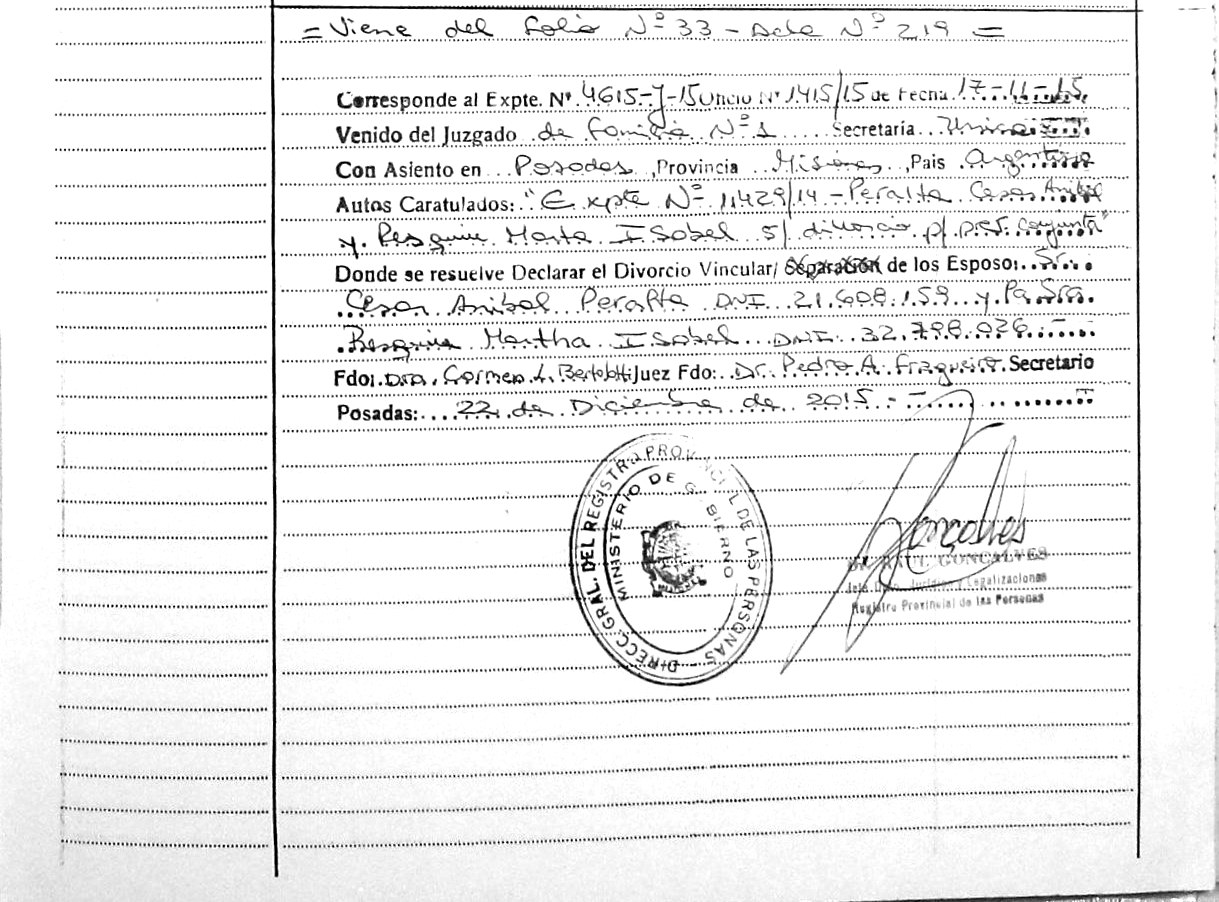 = Viene del Folio Nº 33 - Acta Nº 219 =
Corresponde al Expte. Nº 4615-Y-15 Oficio Nº 1415/15 de Fecha 17-11-15
Venido del Juzgado de Familia Nº 1 Secretaría Unica
Con Asiento en Posadas, Provincia Misiones, Pais Argentina
Autos Caratulados: "Expte Nº 11429/14 - Peralta Cesar Anibal
y Marta Isabel s/ divorcio p/ conjunta"
Donde se resuelve Declarar el Divorcio Vincular/ Separación de los Esposo: Sr.
Cesar Anibal Peralta DNI 21.608.159 y la Sra.
Martha Isabel DNI. 32.798.026 -
Fdo: Dra. Carmen L. Bertolotti Juez Fdo: Dr. Pedro A. Fragueiro Secretario
Posadas: 22 de Diciembre de 2015 -
DIRECC. GRAL. DEL REGISTRO PROVINCIAL DE LAS PERSONAS
MINISTERIO DE GOBIERNO
Gonçalves
RAUL GONCALVES
Jurídico y Legalizaciones
Registro Provincial de las Personas